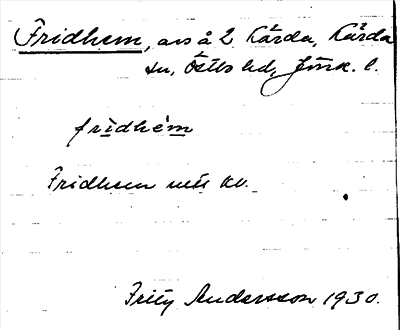 Fridhem, avs å 2 Kärda, Kärda
sn, Östbo hd, Jönk. l.
fridhém
Fridhem
Fritz Andersson 1930.